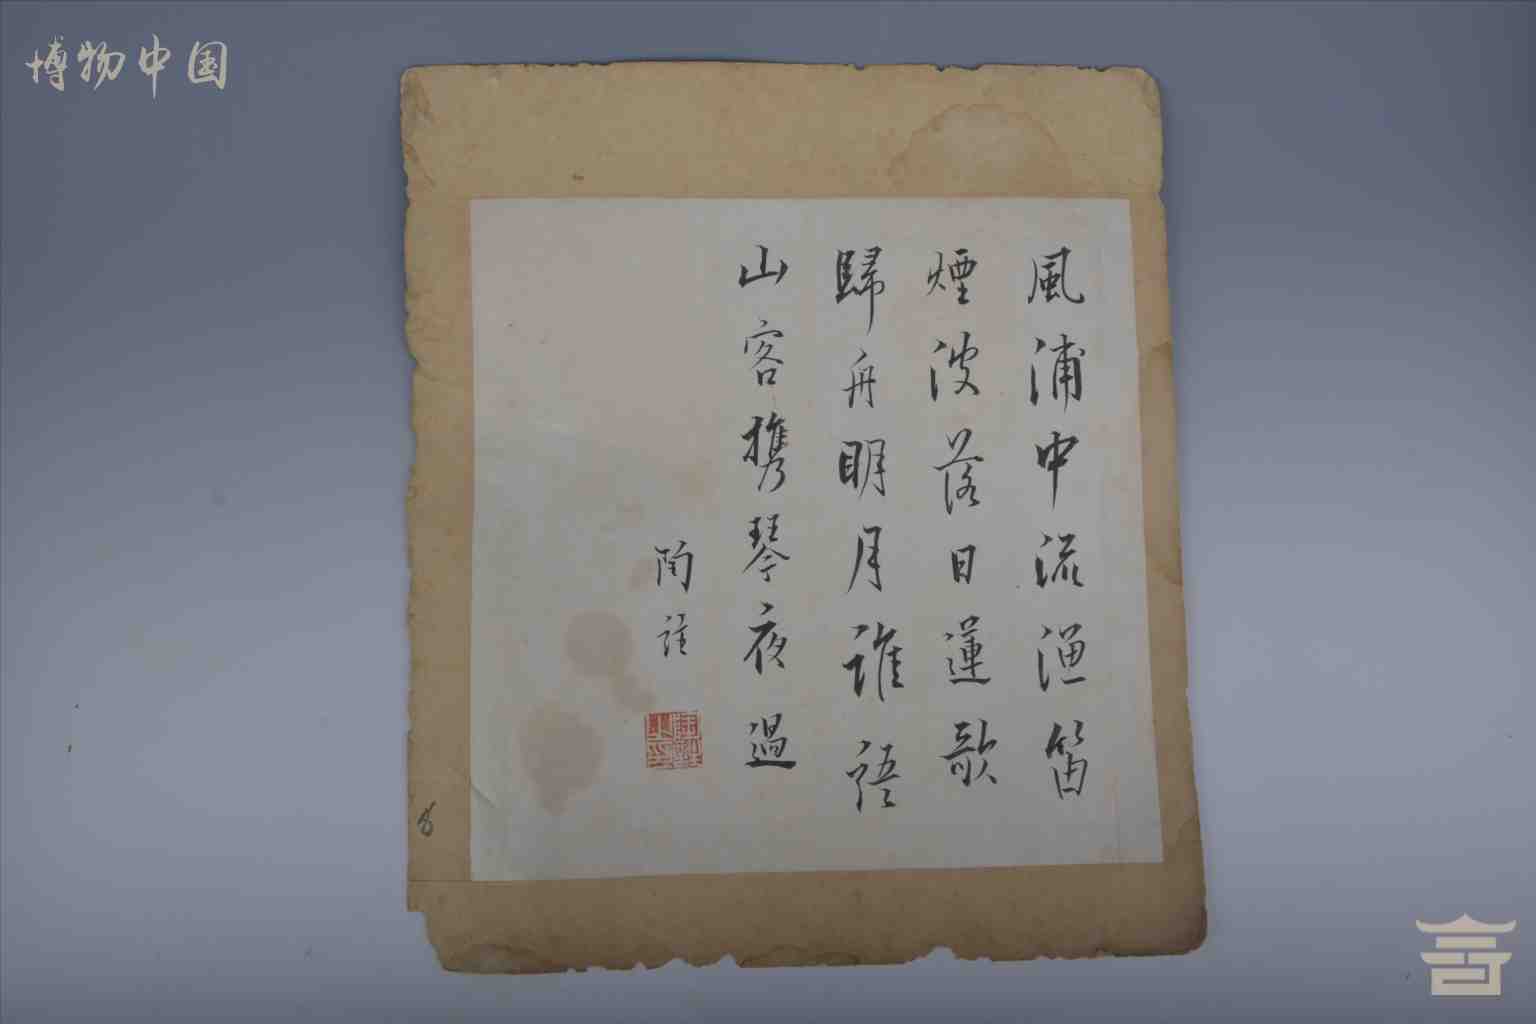 博物中国
風浦中流漁笛
煙波落日蓮歌
歸舟明月誰語
山客携琴夜過
陶